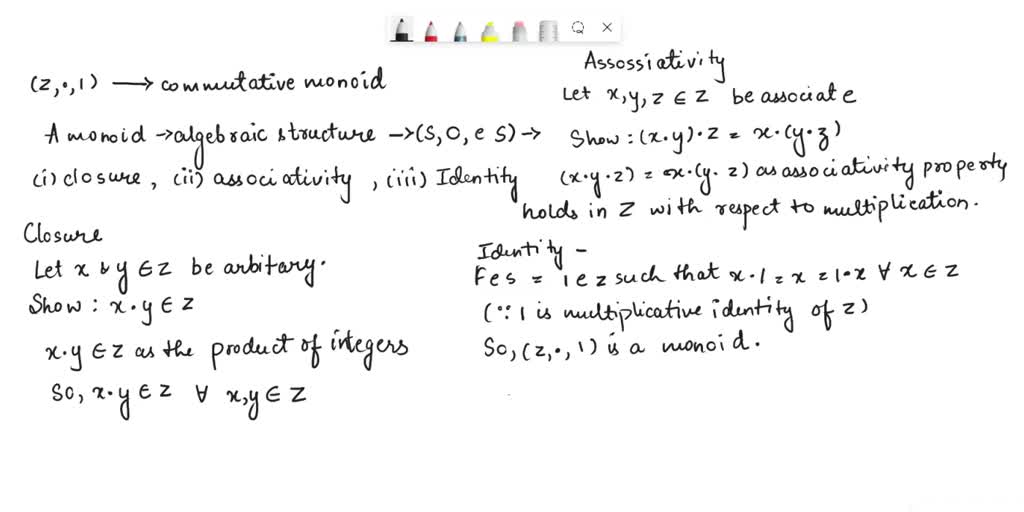 (Z, •, 1) → commutative monoid
A monoid → algebraic structure → (S, O, e S) →
(i) closure, (ii) associativity, (iii) Identity
Closure
Let x & y ∈ Z be arbitary.
Show : x • y ∈ Z
x • y ∈ Z as the product of integers
So, x • y ∈ Z ∀ x, y ∈ Z
Assossiativity
Let x, y, z ∈ Z be associate
Show : (x • y) • z = x • (y • z)
(x • y • z) = x • (y • z) as associativity property
holds in Z with respect to multiplication.
Identity –
F e s = 1 e z such that x • 1 = x = 1 • x ∀ x ∈ Z
(∵ 1 is multiplicative identity of Z)
So, (Z, •, 1) is a monoid.